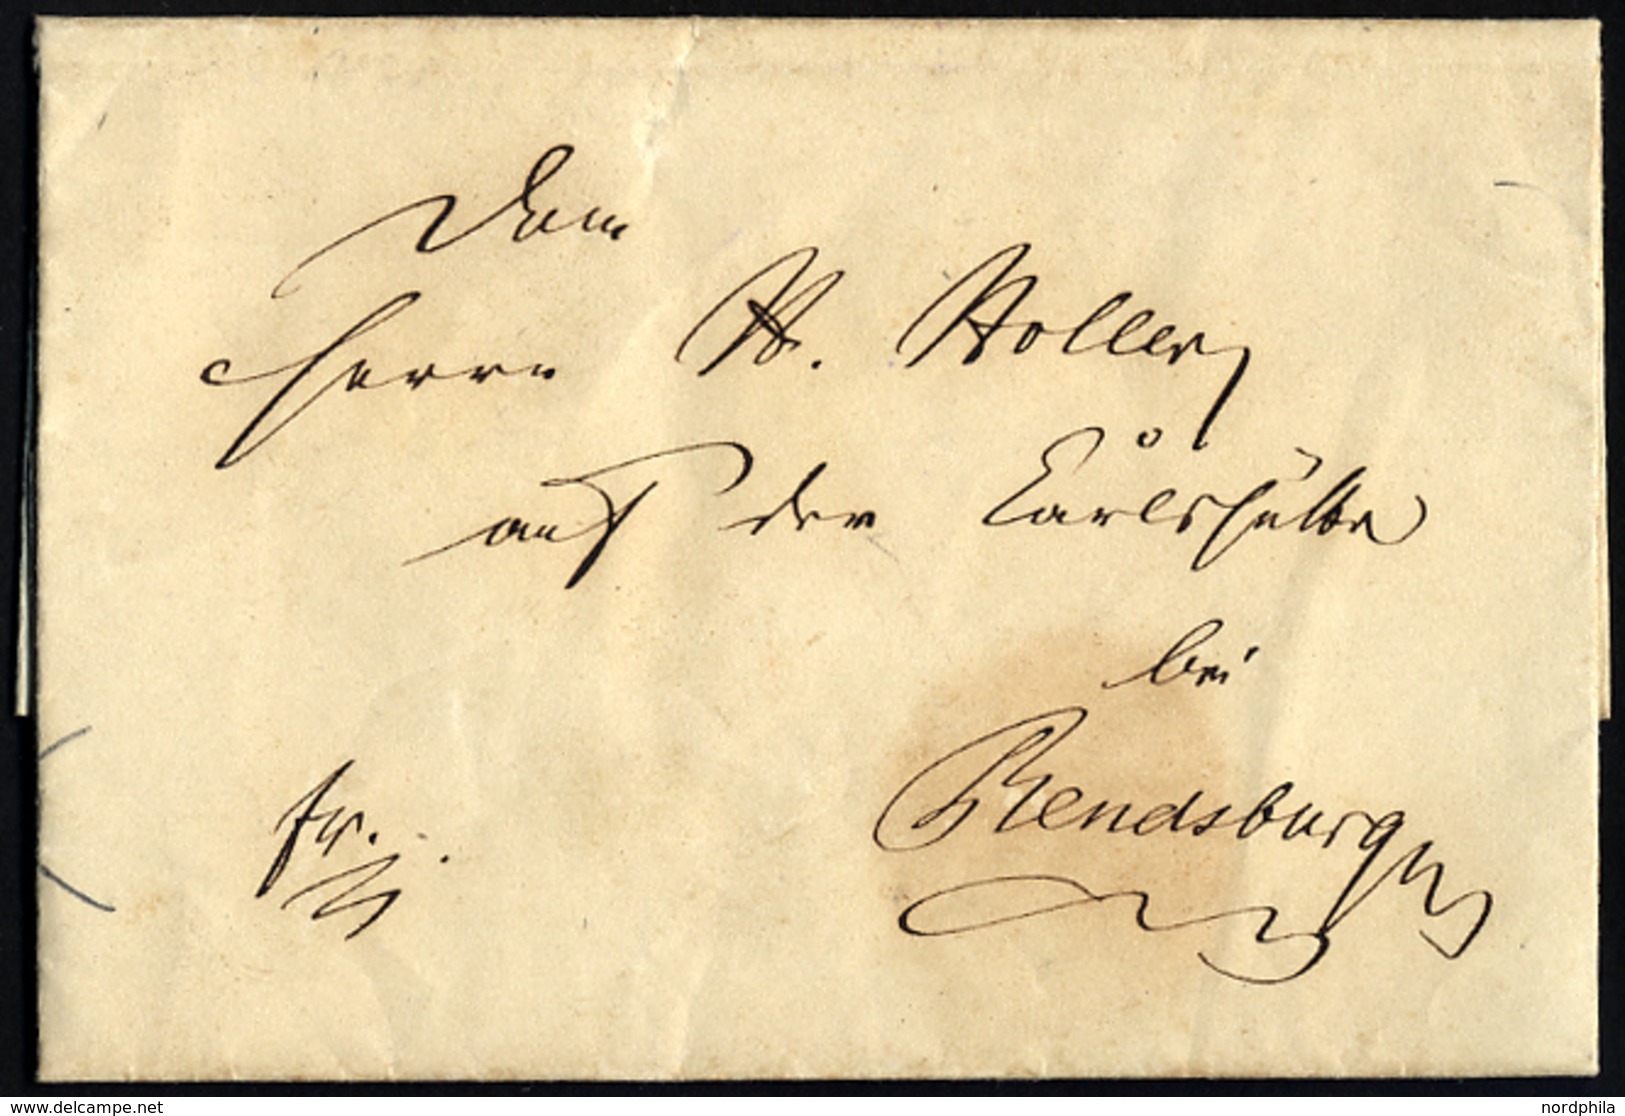 Dem
Herrn H. Holler
auf der Carlshütte
bei
Rendsburg
fr.
www.delcampe.net
nordphila